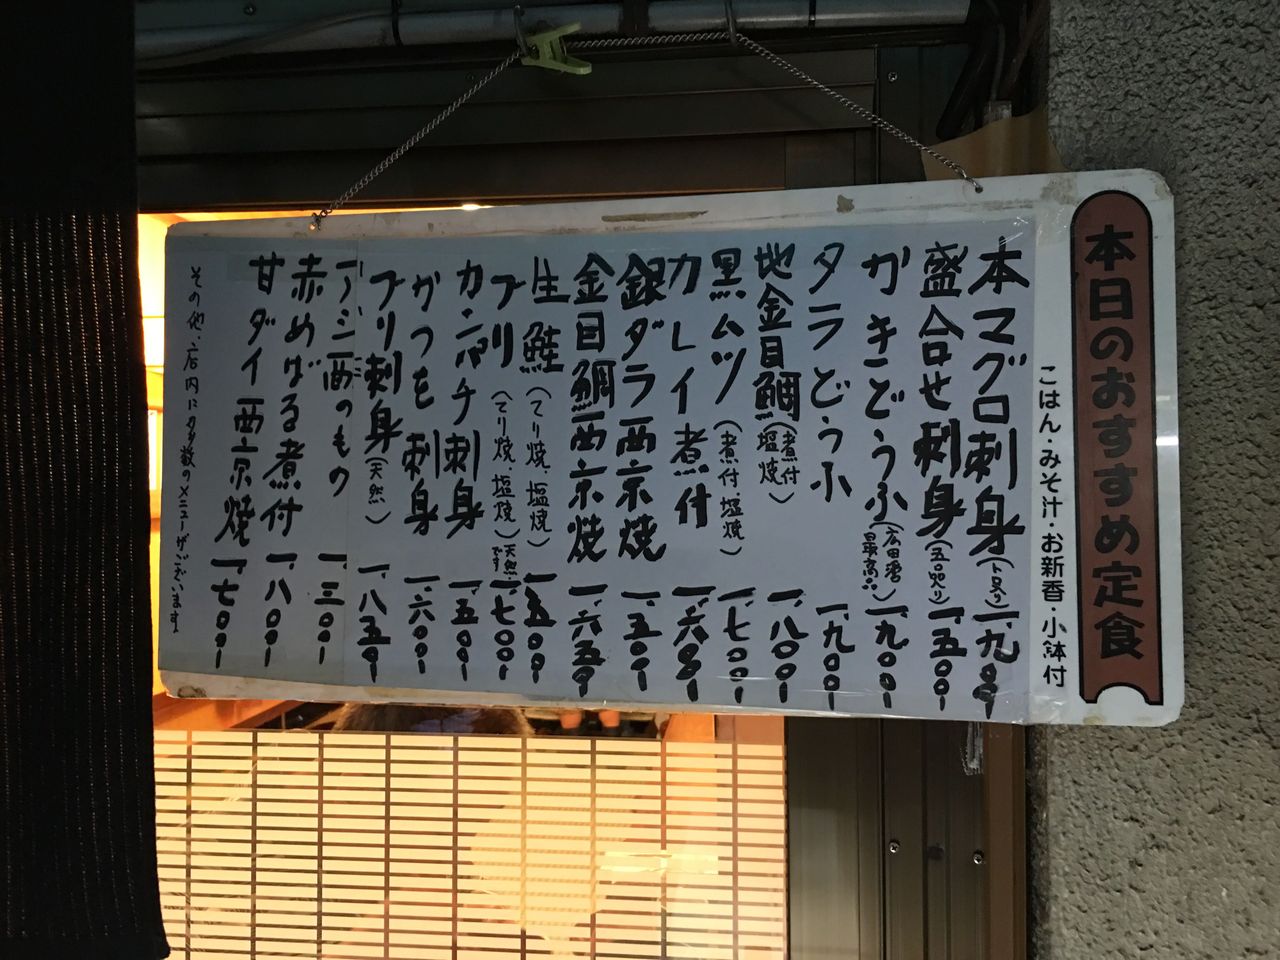 本日のおすすめ定食
ごはん・みそ汁・お新香・小鉢付
本マグロ刺身(トロ入り)一、九〇〇
盛合せ刺身(五品入り)一、五〇〇
かきどうふ(広田湾最高。)一、九〇〇
タラどうふ 一、九〇〇
地金目鯛(煮付 塩焼)一、八〇〇
黒ムツ(煮付・塩焼)一、七〇〇
カレイ煮付 一、六〇〇
銀ダラ西京焼 一、五〇〇
金目鯛西京焼 一、六五〇
生鮭(てり焼・塩焼)一、五〇〇
ブリ(てり焼・塩焼)天然です 一、七〇〇
カンパチ刺身 一、五〇〇
かつを刺身 一、六〇〇
ブリ刺身(天然)一、八五〇
アジ酒のもの 一、三〇〇
赤めばる煮付 一、八〇〇
甘ダイ西京焼 一、七〇〇
その他、店内に多数のメニューがございます